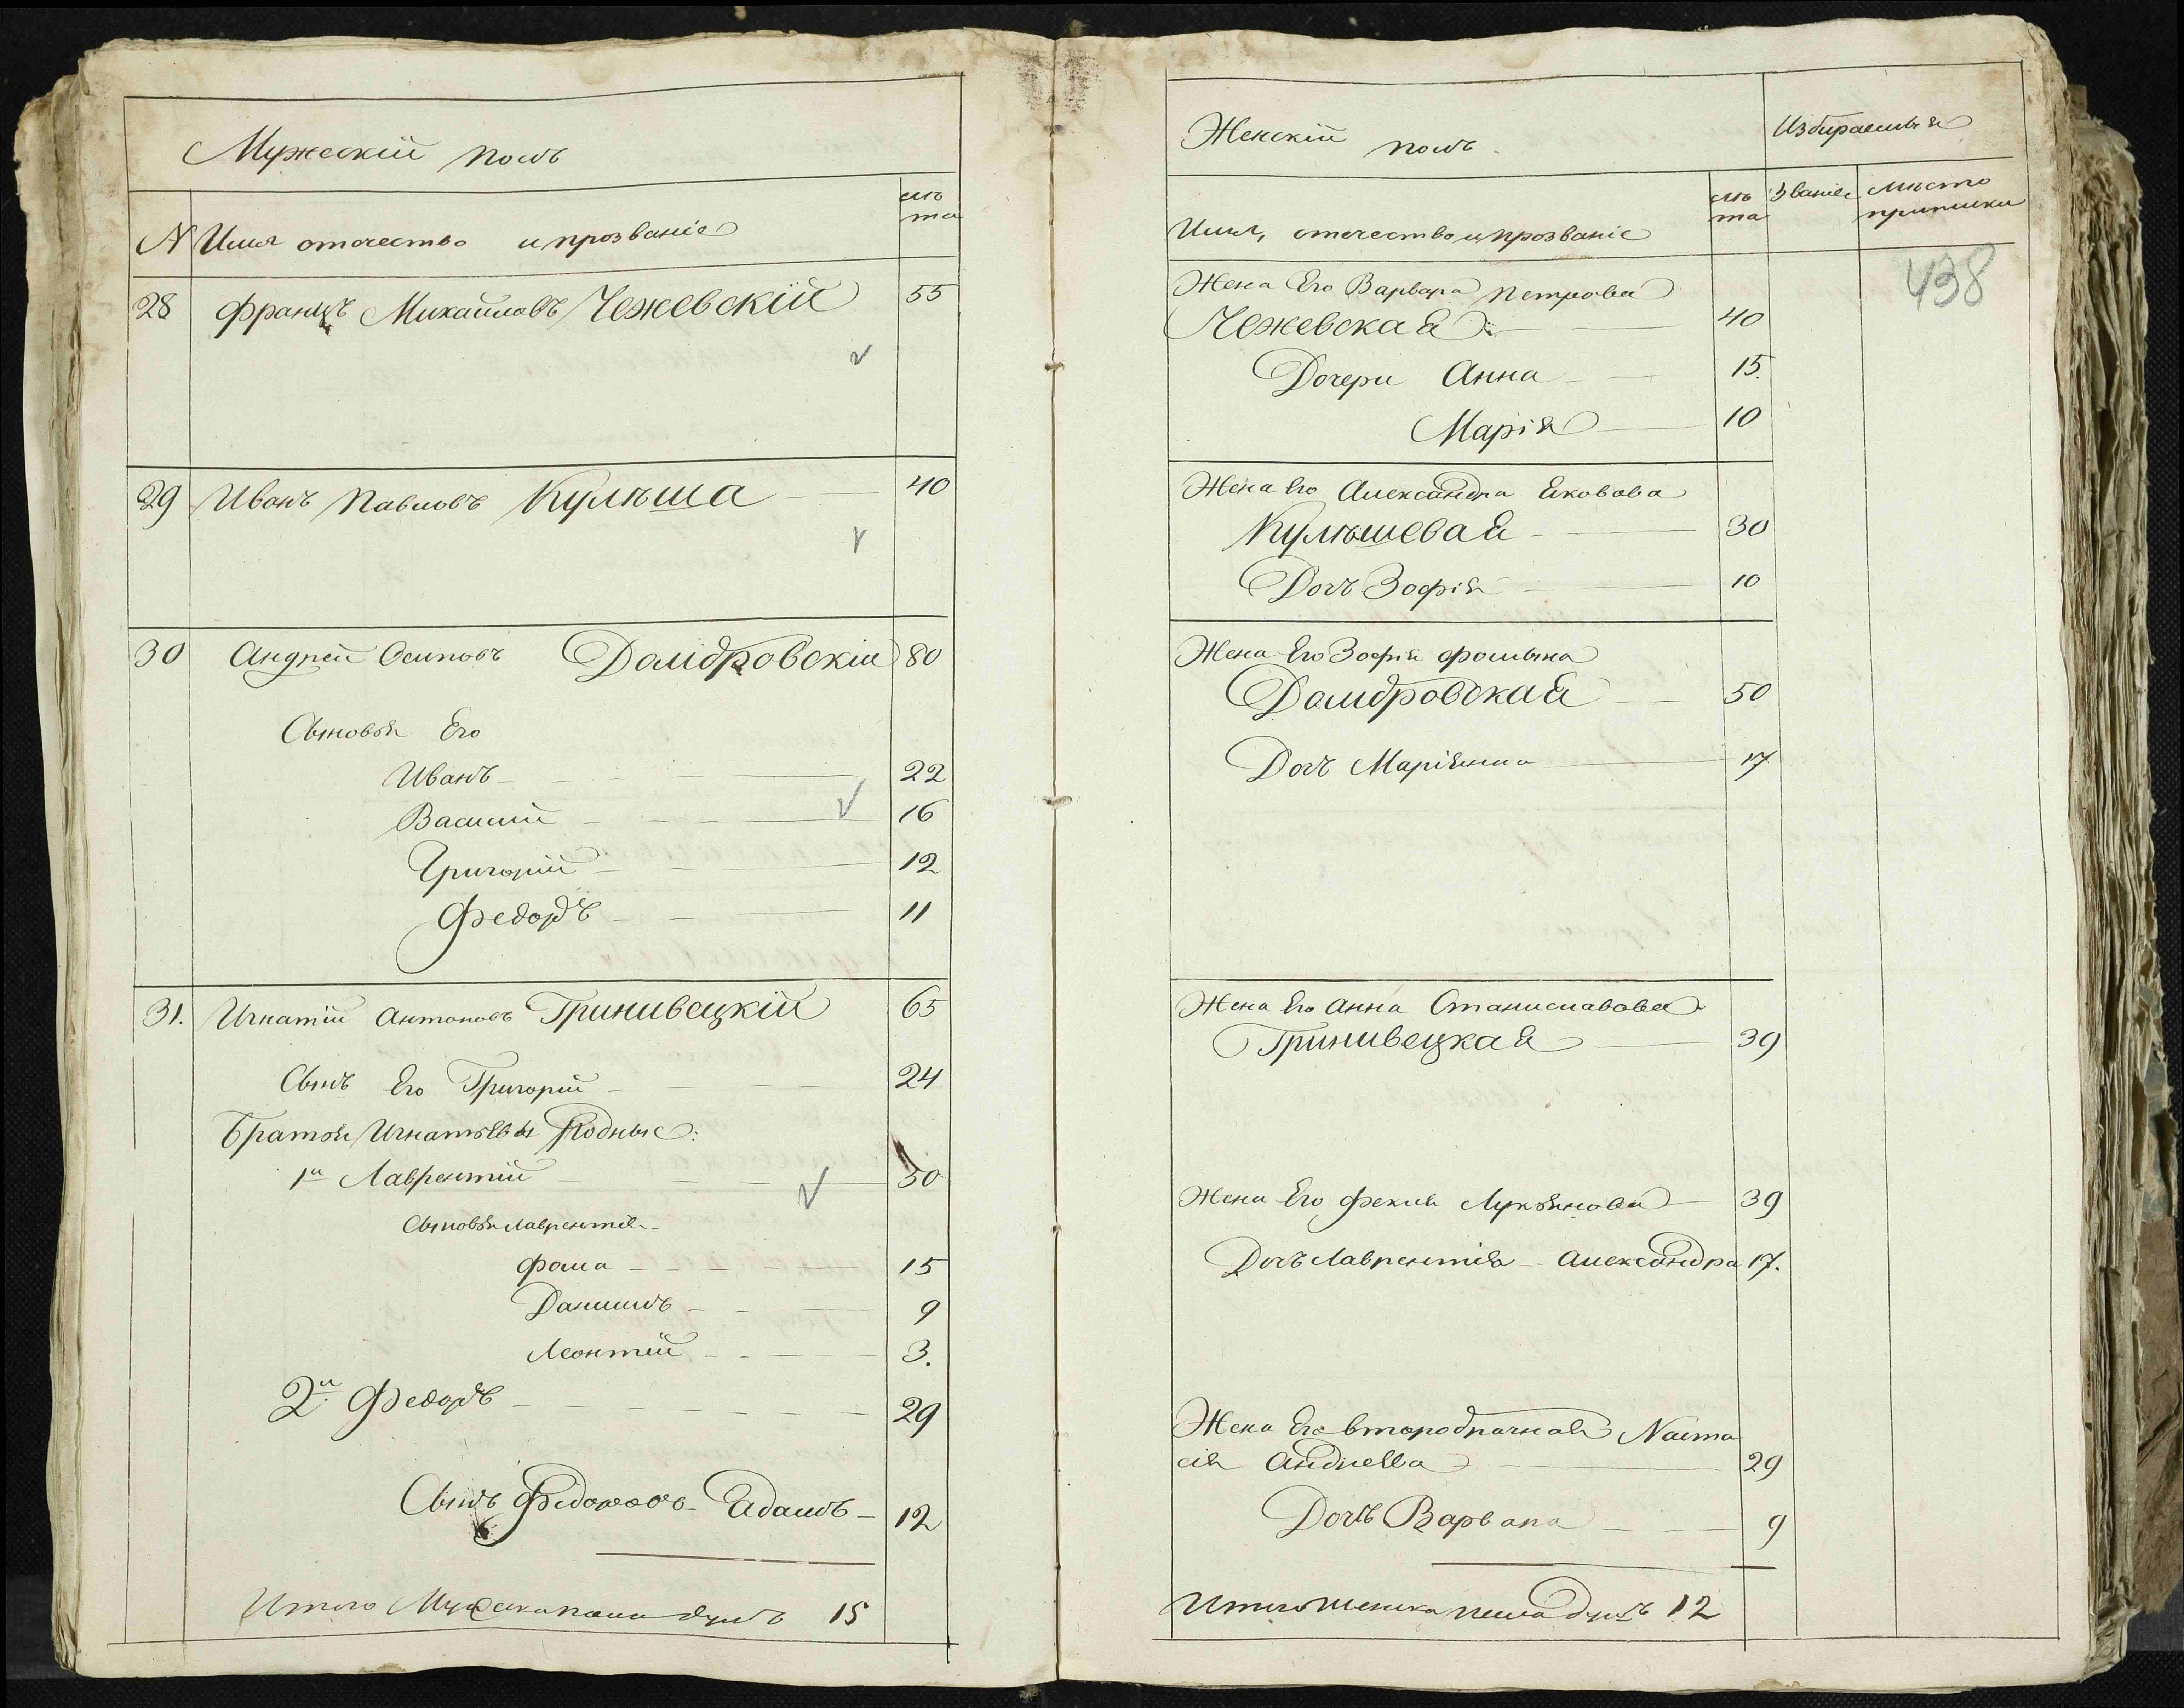 Мужескій полъ
лѣ
та
N Имя отечество и прозваніе
28 Францъ Михайловъ Чежевскій 55
29 Иванъ Павловъ Кулѣша 40
30 Андрей Осиповъ Домбровскій 80
Сыновья Его
Иванъ 22
Василій 16
Григорій 12
Федоръ 11
31. Игнатій Антоновъ Гриневецкій 65
Сынъ Его Григорій 24
Братья Игнатьевы Родные:
1й Лаврентій 50
Сыновья Лаврентія
Фома 15
Данилъ 9
Леонтій 3.
2й Федоръ 29
Сынъ Федоровъ Адамъ 12
Итого Мужеска пола душъ 15
Женскій полъ
Избираемыя
Имя, отечество и прозваніе
лѣ
та
Званіе
Мѣсто
приписки
438
Жена Его Варвара Петрова
Чежевская 40
Дочери Анна 15.
Марія 10
Жена Его Александра Яковова
Кулѣшевая 30
Дочь Зофія 10
Жена Его Зофія Фомына
Домбровская 50
Дочь Маріянна 17
Жена Его Анна Станиславова
Гриневецкая 39
Жена Его Фекля Лукьянова 39
Дочь Лаврентія Александра 17.
Жена Его второбрачная Наста
сія Андреева 29
Дочь Варвара 9
Итого Женска пола душъ 12